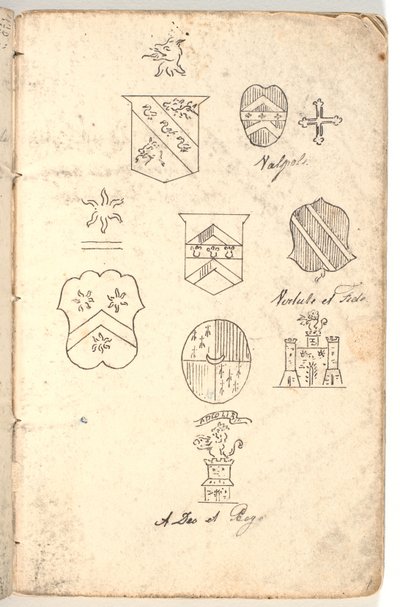 Walpole
Virtute et Fide
A Deo et Rege